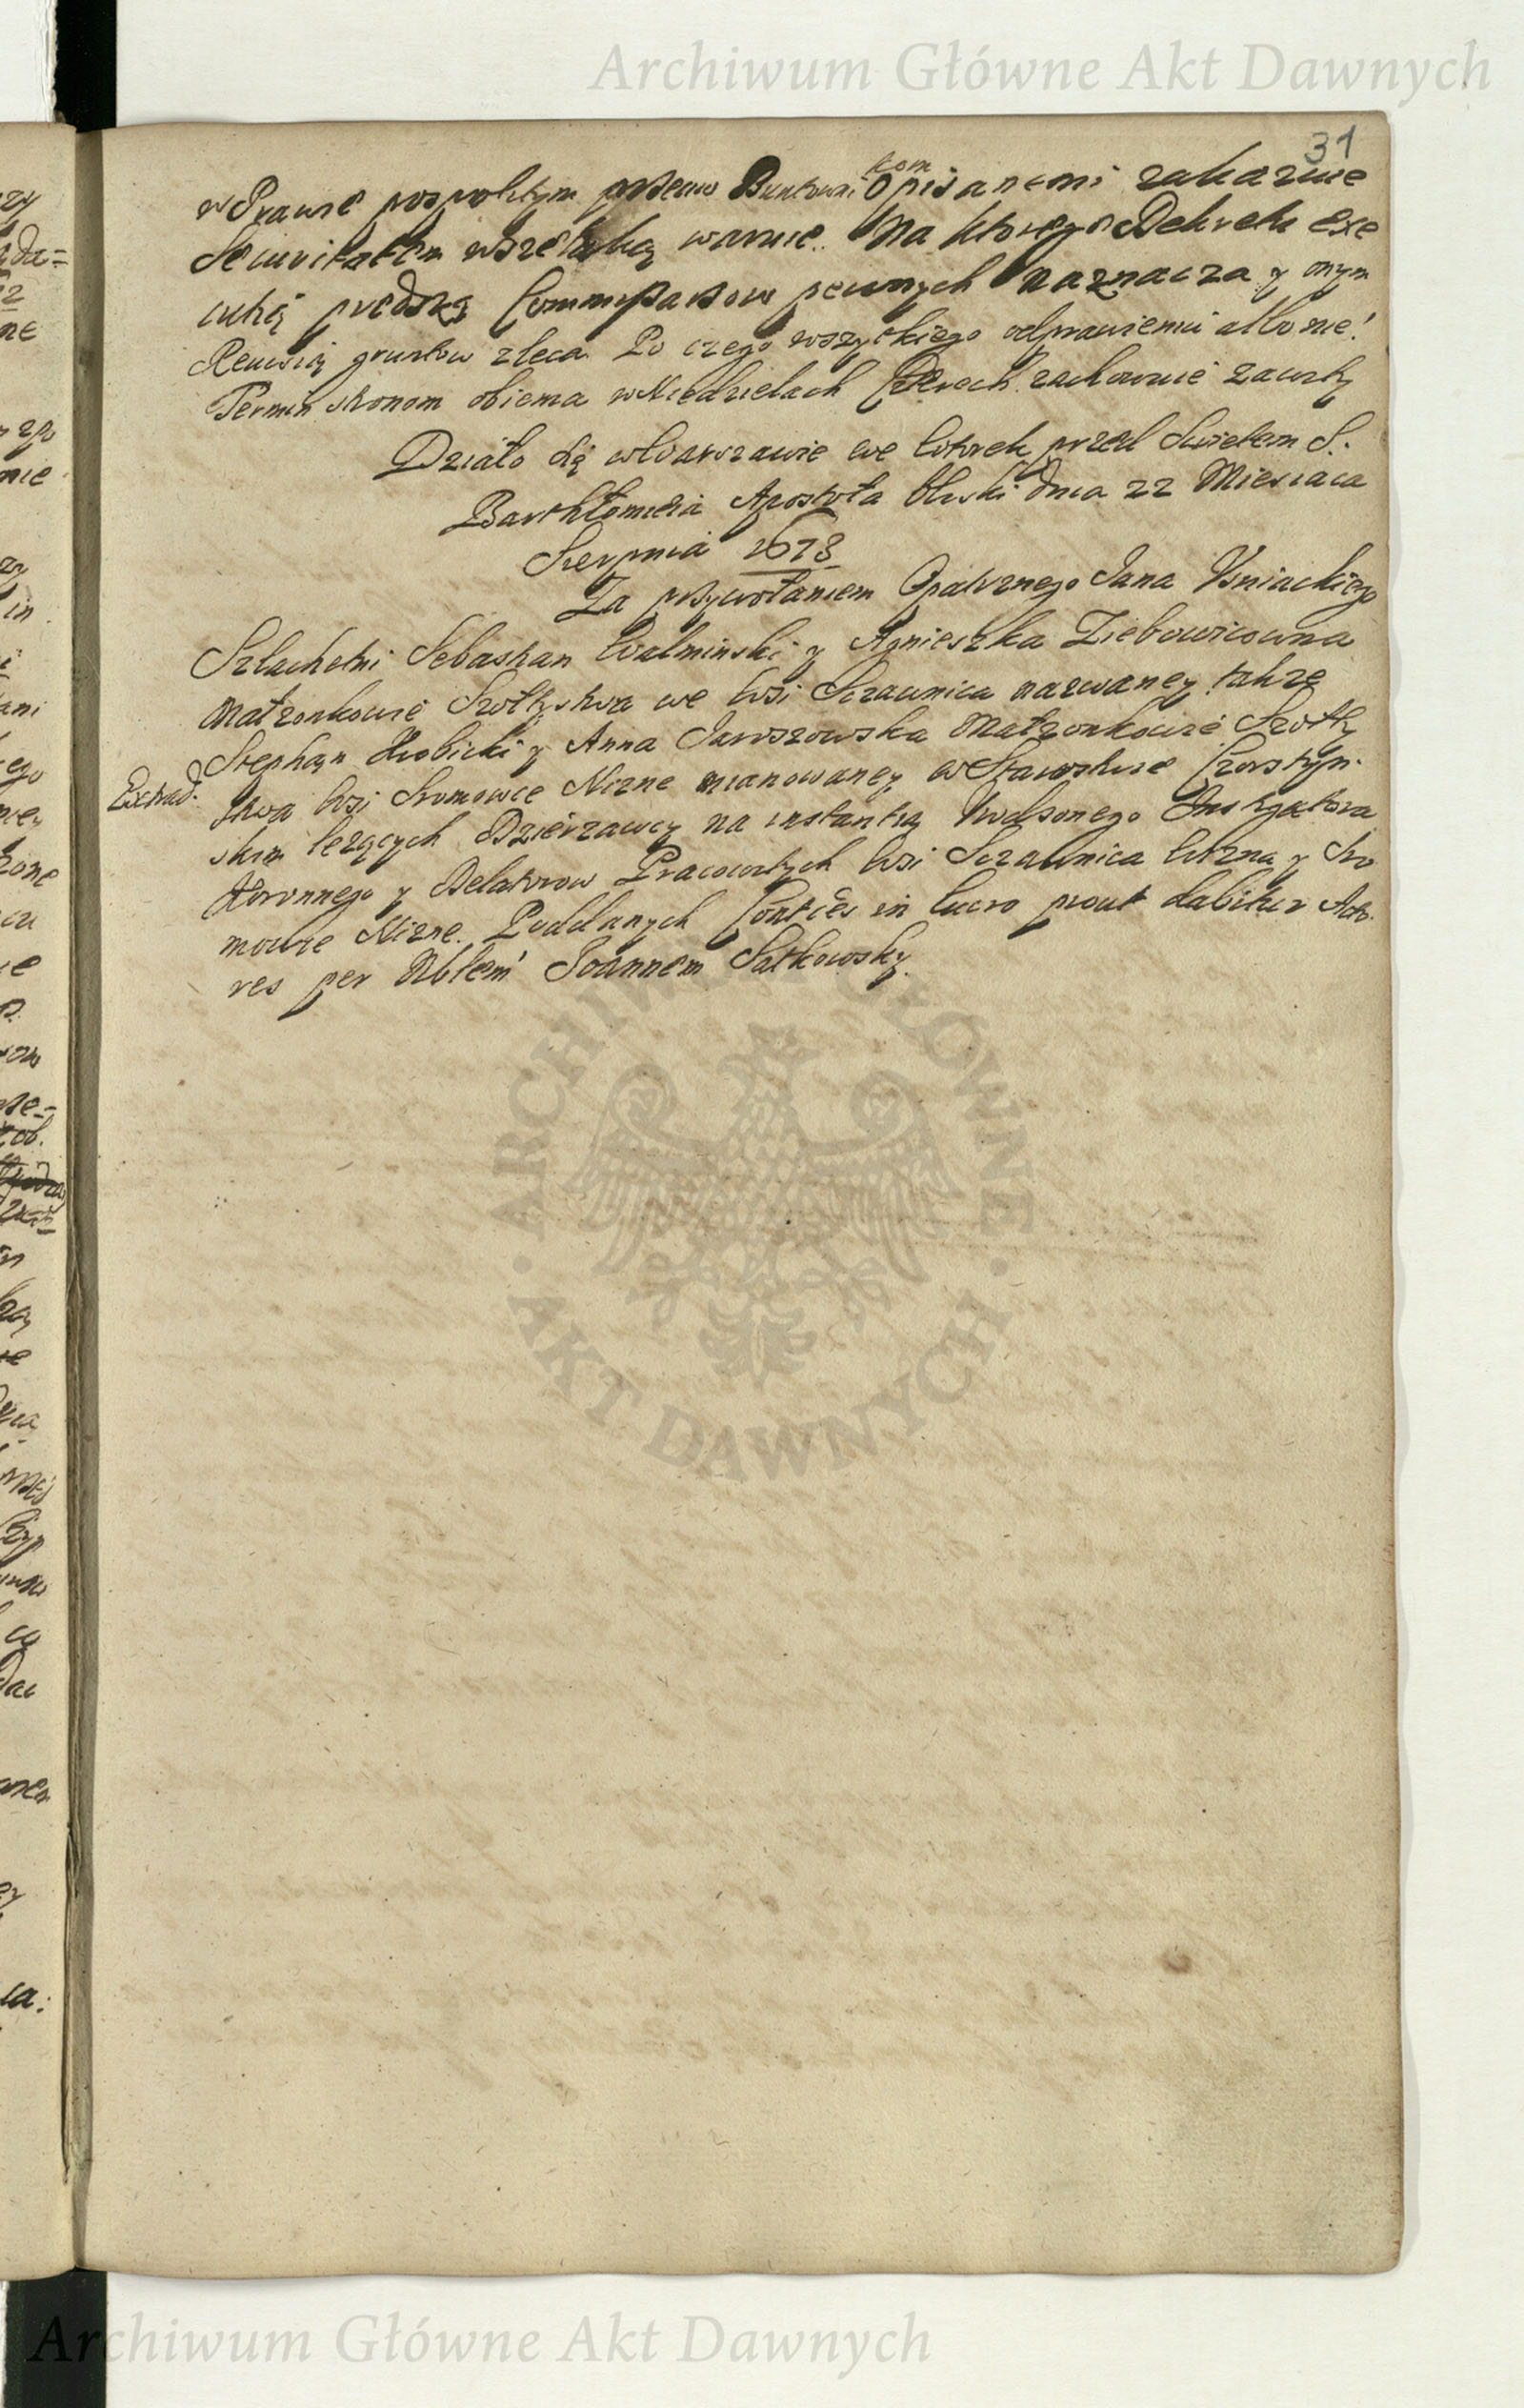 Archiwum Główne Akt Dawnych
31
w Prawie pospolitym przeciw Buntowni kom Opisanemi zakazuie
Securitatem wszelaką waruie. Na ktorego Dekretu exe
cutią prędszą Commissarzow pewnych naznacza y onym
Rewisią gruntow zleca. Po czego wszytkiego odprawieniu albo nie!
Termin stronom obiema w Niedzielach Czterech zachowuie zawity
Działo się w Warszawie we Wtorek przed Swietem S.
Barthłomieia Apostoła bliski dnia 22 Miesiaca
Sierpnia 1678
Za przywołaniem Opatrznego Jana Usniackiego
Szlachetni Sebastian Walminski y Agnieszka Ziebowicowna
Małzonkowie Szołtystwa we Wsi Sczawnica nazwaney, takze
Stephan Hrobicki y Anna Jaroszowska Małzonkowie Szołty
Extrad.
stwa Wsi Sromowce Nizne mianowaney w Starostwie Czorstyn-
skim lezących Dzierzawcy na instantią Urodzonego Instygatora
Koronnego y Delatorow Pracowitych Wsi Sczawnica Wizna y Sro
mowce Nizne Poddanych Conties in lucro prout dabitur Acto-
res per Nblem Joannem Satkowsky.
ARCHIWUM GŁÓWNE
AKT DAWNYCH
Archiwum Główne Akt Dawnych